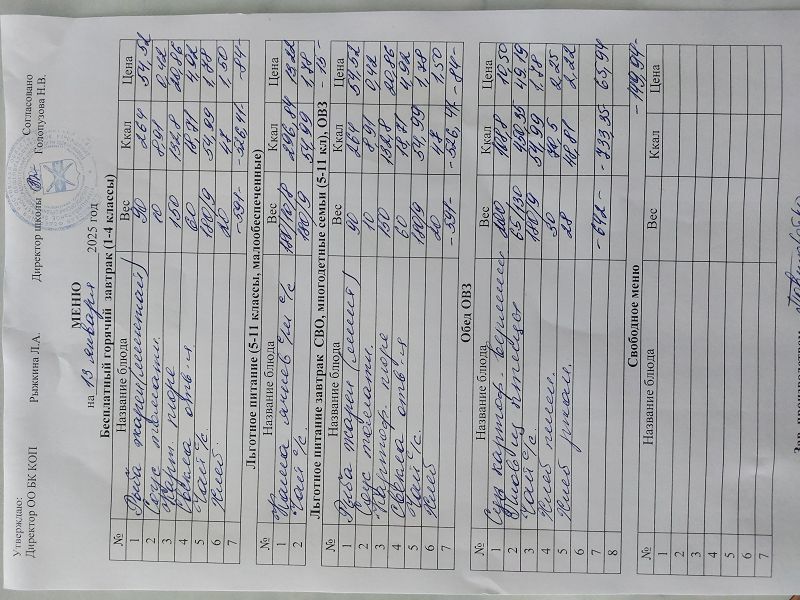 Утверждаю:
Директор ОО БК КОП Рыжкина Л.А. Директор школы Согласовано Голопузова Н.В.
МЕНЮ
на 13 января 2025 год
Бесплатный горячий завтрак (1-4 классы)
№ Название блюда Вес Ккал Цена
1 Рыба жарен (минтай) 90 264 54,52
2 Соус томатн. 10 8,91 0,42
3 Карт. пюре 150 132,8 20,86
4 Свекла отв-я 60 18,71 4,92
5 Чай с/с 180/9 54,99 1,78
6 Хлеб 20 48 1,50
7 -591- -526,41- -84-
Льготное питание (5-11 классы, малообеспеченные)
№ Название блюда Вес Ккал Цена
1 Каша ячнев с/с 13,22
2 Чай с/с 180/9 54,99 1,78
- 15 -
Льготное питание завтрак СВО, многодетные семьи (5-11 кл), ОВЗ
№ Название блюда Вес Ккал Цена
1 Рыба жарен (минтай) 90 264 54,52
2 Соус томатн. 10 8,91 0,42
3 Картоф. пюре 150 132,8 20,86
4 Свекла отв-я 60 18,71 4,92
5 Чай с/с. 180/9 54,99 1,78
6 Хлеб 20 48 1,50
7 -591- -526,41- -84-
Обед ОВЗ
№ Название блюда Вес Ккал Цена
1 Суп картоф. 200 10,50
2 Плов из птицы 65/130 450,35 49,19
3 Чай с/с 180/9 54,99 1,78
4 Хлеб пшен. 30 70,5 2,25
5 Хлеб ржан. 28 2,22
6
7 -642- -733,35 65,94
8
Свободное меню -149,94-
№ Название блюда Вес Ккал Цена
1
2
3
4
5
6
7